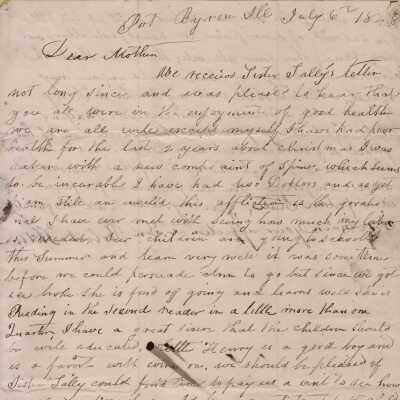 Port Byron Ill July 6th 18
Dear Mother
We receivd Sister Sally's letter
not long since and was pleased to hear that
you all were in the enjoyment of good health
we are all well except myself I have had poor
health for the last 2 years about Christmas I was
taken with a new complaint of Spine, which seems
to be incurable I have had two Doctors and as yet
I am Still an invalid this affliction is the greatest
I have ever met with being how much my labor
is needed Our children are going to school
this Summer and learn very well it was some time
before we could persuade them to go but since we got
broke she is fond of going and learns well she is
Reading in the Second reader in a little more than one
Quarter I have a great desire that the children should
be well educated, little Henry is a good boy and
is a favorit with every one, we should be pleased if
Sister Sally could find time to pay us a visit to see how